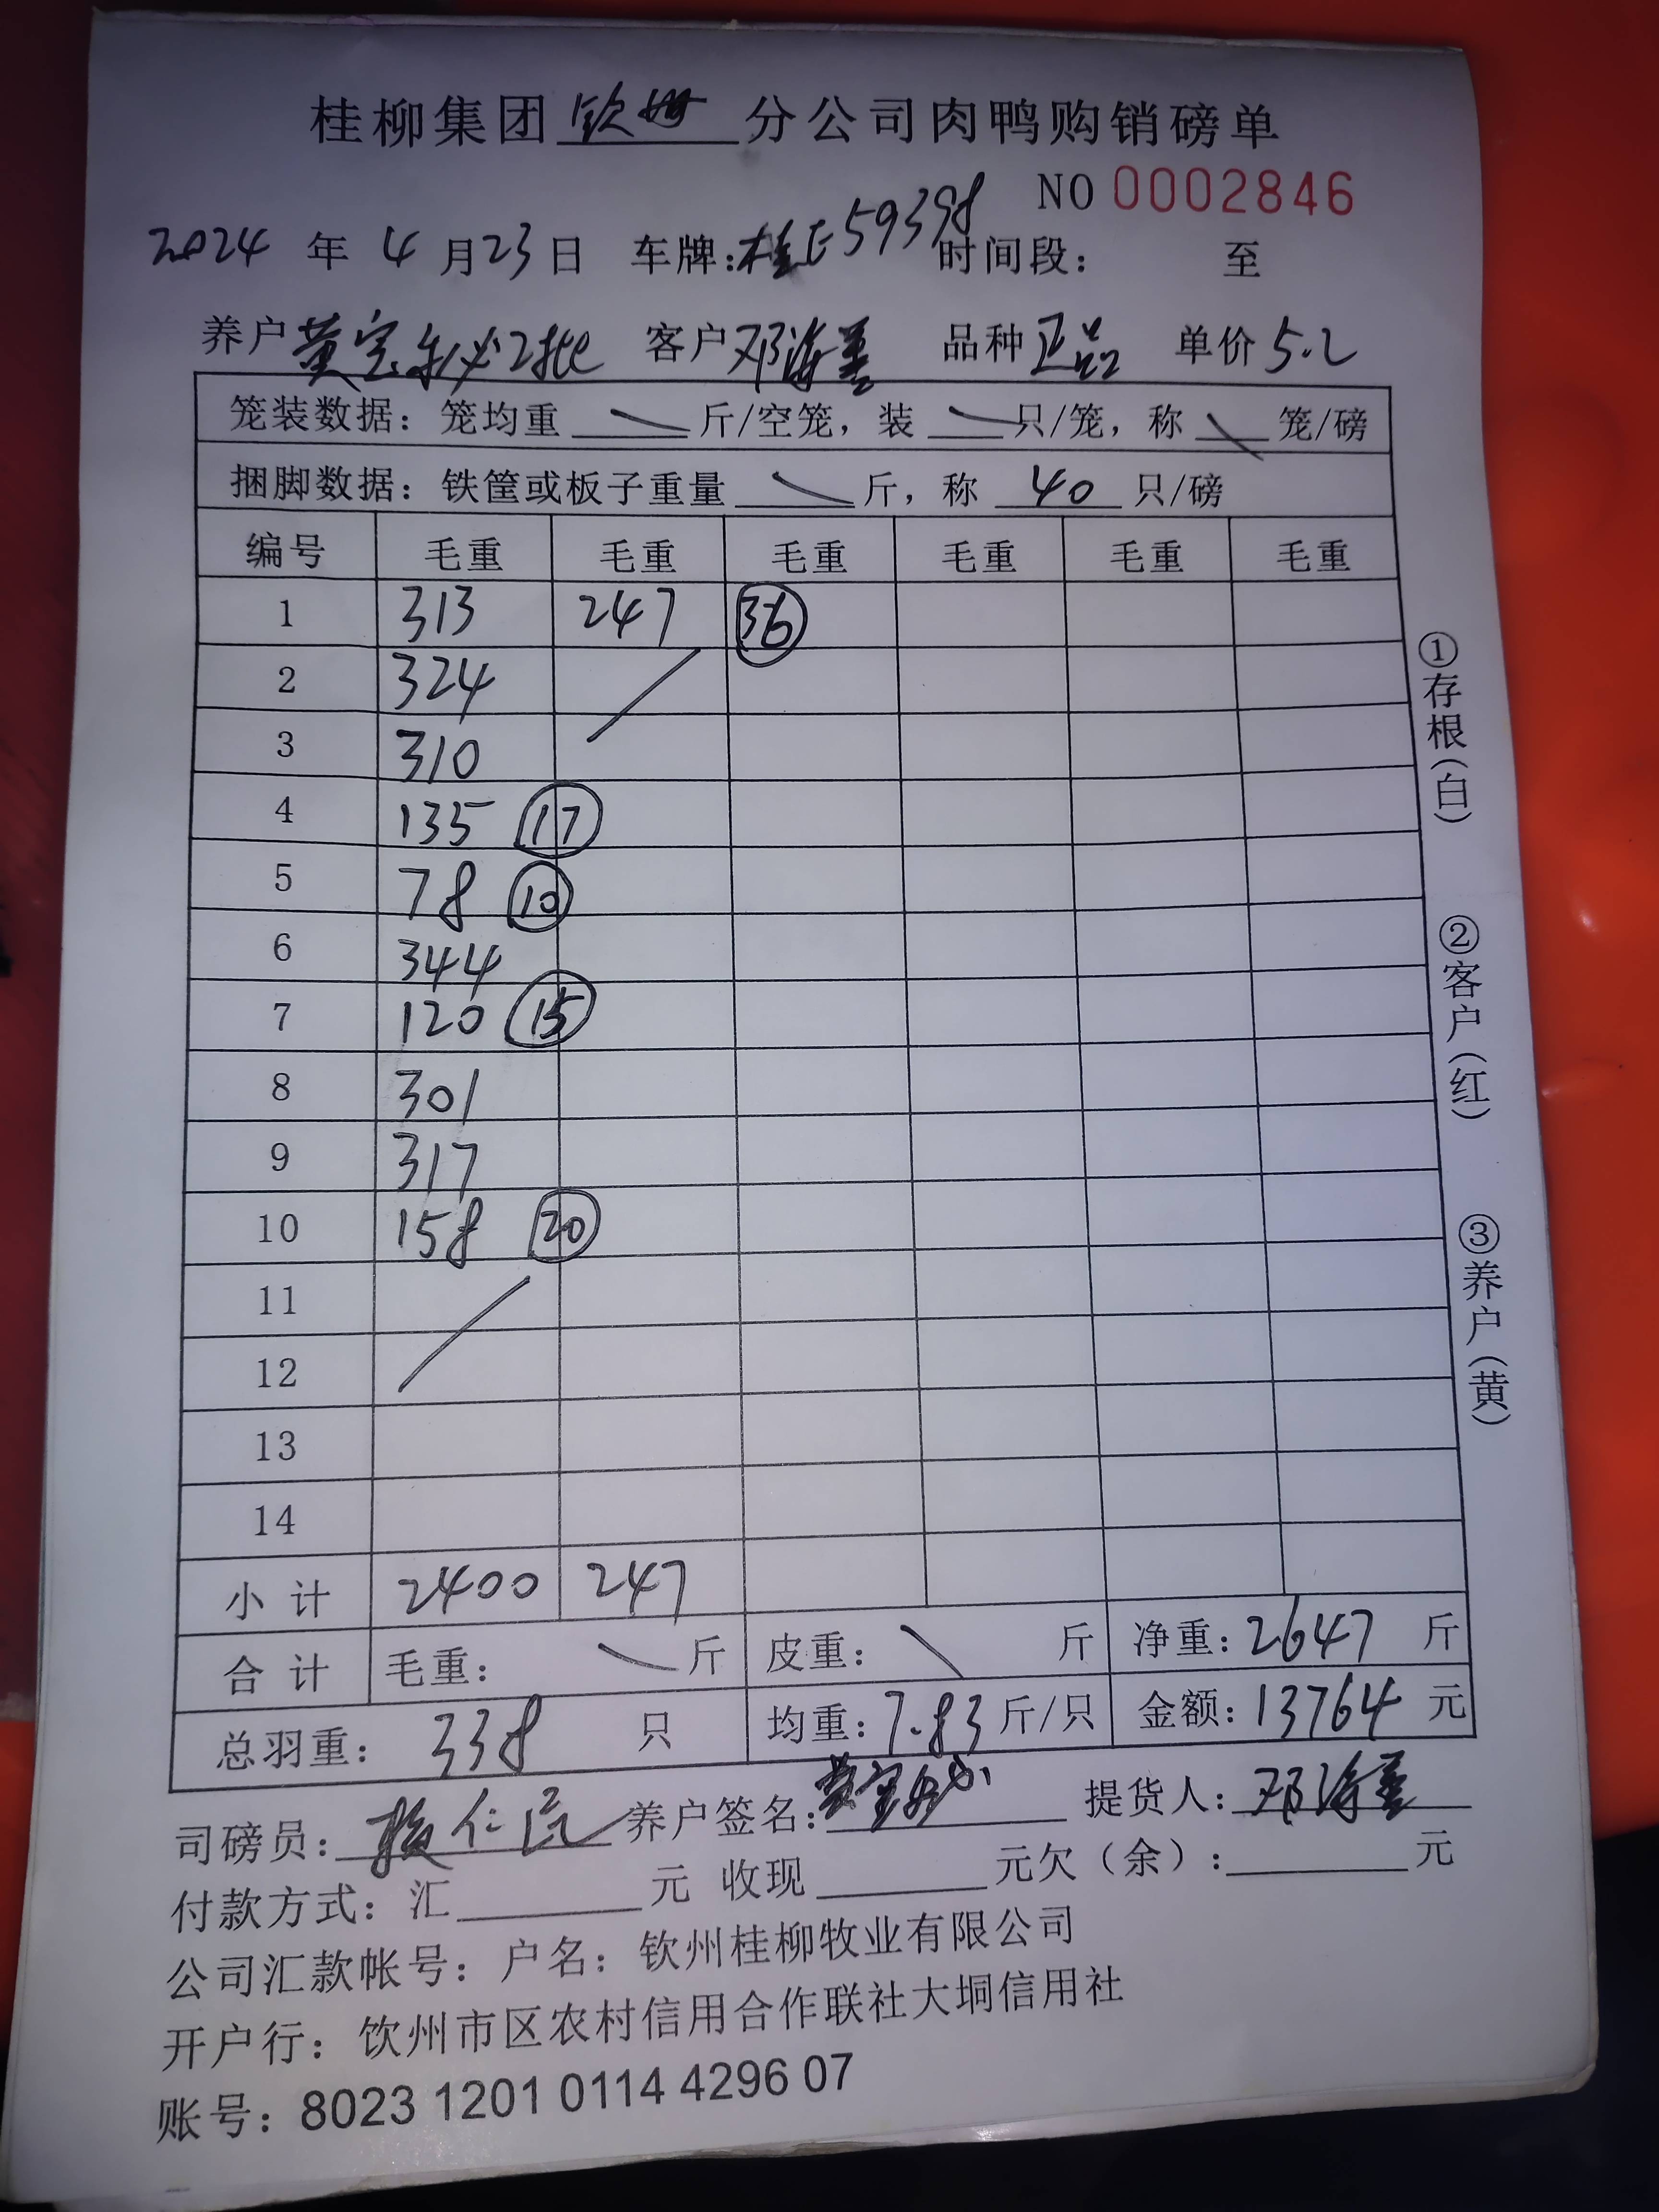 桂柳集团钦州分公司肉鸭购销磅单
NO 0002846
2024 年 4 月 23 日 车牌:桂E59398 时间段: 至
养户 黄宝 2批 客户 邓海 品种 正品 单价 5.2
笼装数据: 笼均重 斤/空笼, 装 只/笼, 称 笼/磅
捆脚数据: 铁筐或板子重量 斤, 称 40 只/磅
编号 毛重 毛重 毛重 毛重 毛重 毛重
1 313 247 36
2 324
3 310
4 135 17
5 78 10
6 344
7 120 15
8 301
9 317
10 158 20
11
12
13
14
小 计 2400 247
合 计 毛重: 斤 皮重: 斤 净重: 2647 斤
总羽重: 338 只 均重: 7.83 斤/只 金额: 13764 元
司磅员: 仁 养户签名: 黄宝 提货人: 邓海
付款方式: 汇 元 收现 元欠(余): 元
公司汇款帐号: 户名: 钦州桂柳牧业有限公司
开户行: 钦州市区农村信用合作联社大垌信用社
账号: 8023 1201 0114 4296 07
①存根(白)
②客户(红)
③养户(黄)